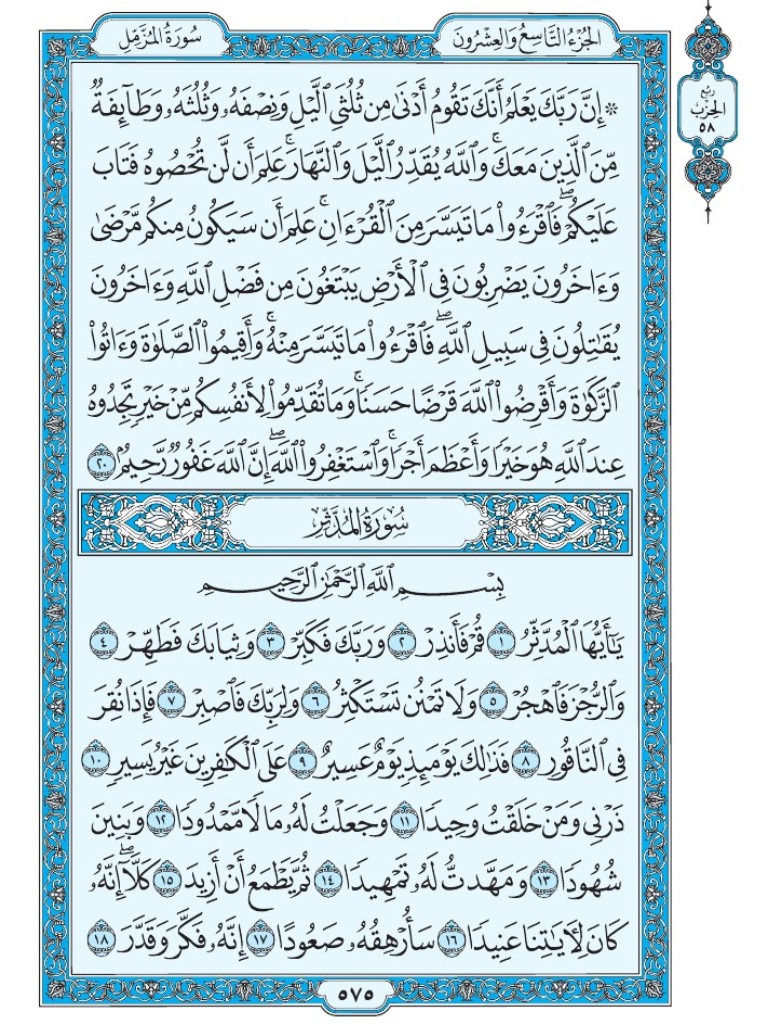 الجزء التاسع والعشرون
سورة المزمل
ربع
الحزب
٥٨
۞ إِنَّ رَبَّكَ يَعْلَمُ أَنَّكَ تَقُومُ أَدْنَىٰ مِن ثُلُثَيِ ٱلَّيْلِ وَنِصْفَهُۥ وَثُلُثَهُۥ وَطَآئِفَةٌ
مِّنَ ٱلَّذِينَ مَعَكَۚ وَٱللَّهُ يُقَدِّرُ ٱلَّيْلَ وَٱلنَّهَارَۚ عَلِمَ أَن لَّن تُحْصُوهُ فَتَابَ
عَلَيْكُمْۖ فَٱقْرَءُوا۟ مَا تَيَسَّرَ مِنَ ٱلْقُرْءَانِۚ عَلِمَ أَن سَيَكُونُ مِنكُم مَّرْضَىٰ
وَءَاخَرُونَ يَضْرِبُونَ فِى ٱلْأَرْضِ يَبْتَغُونَ مِن فَضْلِ ٱللَّهِ وَءَاخَرُونَ
يُقَٰتِلُونَ فِى سَبِيلِ ٱللَّهِۖ فَٱقْرَءُوا۟ مَا تَيَسَّرَ مِنْهُۚ وَأَقِيمُوا۟ ٱلصَّلَوٰةَ وَءَاتُوا۟
ٱلزَّكَوٰةَ وَأَقْرِضُوا۟ ٱللَّهَ قَرْضًا حَسَنًاۚ وَمَا تُقَدِّمُوا۟ لِأَنفُسِكُم مِّنْ خَيْرٍ تَجِدُوهُ
عِندَ ٱللَّهِ هُوَ خَيْرًا وَأَعْظَمَ أَجْرًاۚ وَٱسْتَغْفِرُوا۟ ٱللَّهَۖ إِنَّ ٱللَّهَ غَفُورٌ رَّحِيمٌۢ ٢٠
سُورَةُ المُدَّثِّرِ
بِسْمِ ٱللَّهِ ٱلرَّحْمَٰنِ ٱلرَّحِيمِ
يَٰٓأَيُّهَا ٱلْمُدَّثِّرُ ١ قُمْ فَأَنذِرْ ٢ وَرَبَّكَ فَكَبِّرْ ٣ وَثِيَابَكَ فَطَهِّرْ ٤
وَٱلرُّجْزَ فَٱهْجُرْ ٥ وَلَا تَمْنُن تَسْتَكْثِرُ ٦ وَلِرَبِّكَ فَٱصْبِرْ ٧ فَإِذَا نُقِرَ
فِى ٱلنَّاقُورِ ٨ فَذَٰلِكَ يَوْمَئِذٍ يَوْمٌ عَسِيرٌ ٩ عَلَى ٱلْكَٰفِرِينَ غَيْرُ يَسِيرٍ ١٠
ذَرْنِى وَمَنْ خَلَقْتُ وَحِيدًا ١١ وَجَعَلْتُ لَهُۥ مَالًا مَّمْدُودًا ١٢ وَبَنِينَ
شُهُودًا ١٣ وَمَهَّدتُّ لَهُۥ تَمْهِيدًا ١٤ ثُمَّ يَطْمَعُ أَنْ أَزِيدَ ١٥ كَلَّآۖ إِنَّهُۥ
كَانَ لِءَايَٰتِنَا عَنِيدًا ١٦ سَأُرْهِقُهُۥ صَعُودًا ١٧ إِنَّهُۥ فَكَّرَ وَقَدَّرَ ١٨
٥٧٥